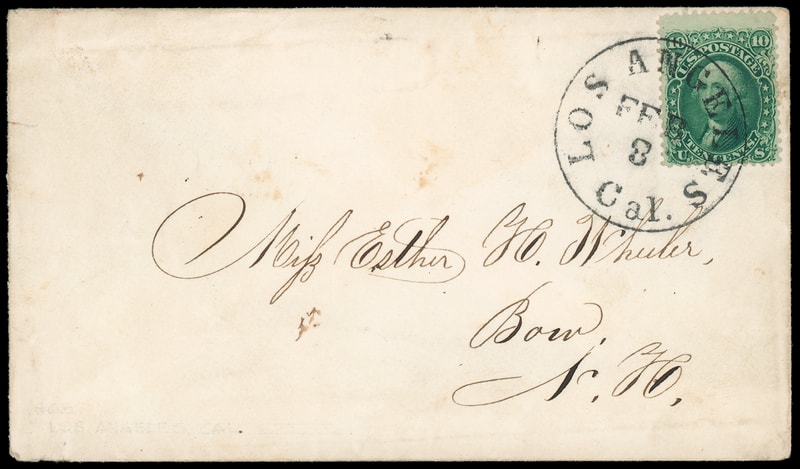 10 10
U.S. POSTAGE
TEN CENTS
U. S.
LOS ANGELES
FEB
8
Cal.
Miſs Esther H. Wheeler,
Bow.
N. H.
LOS ANGELES, CAL.